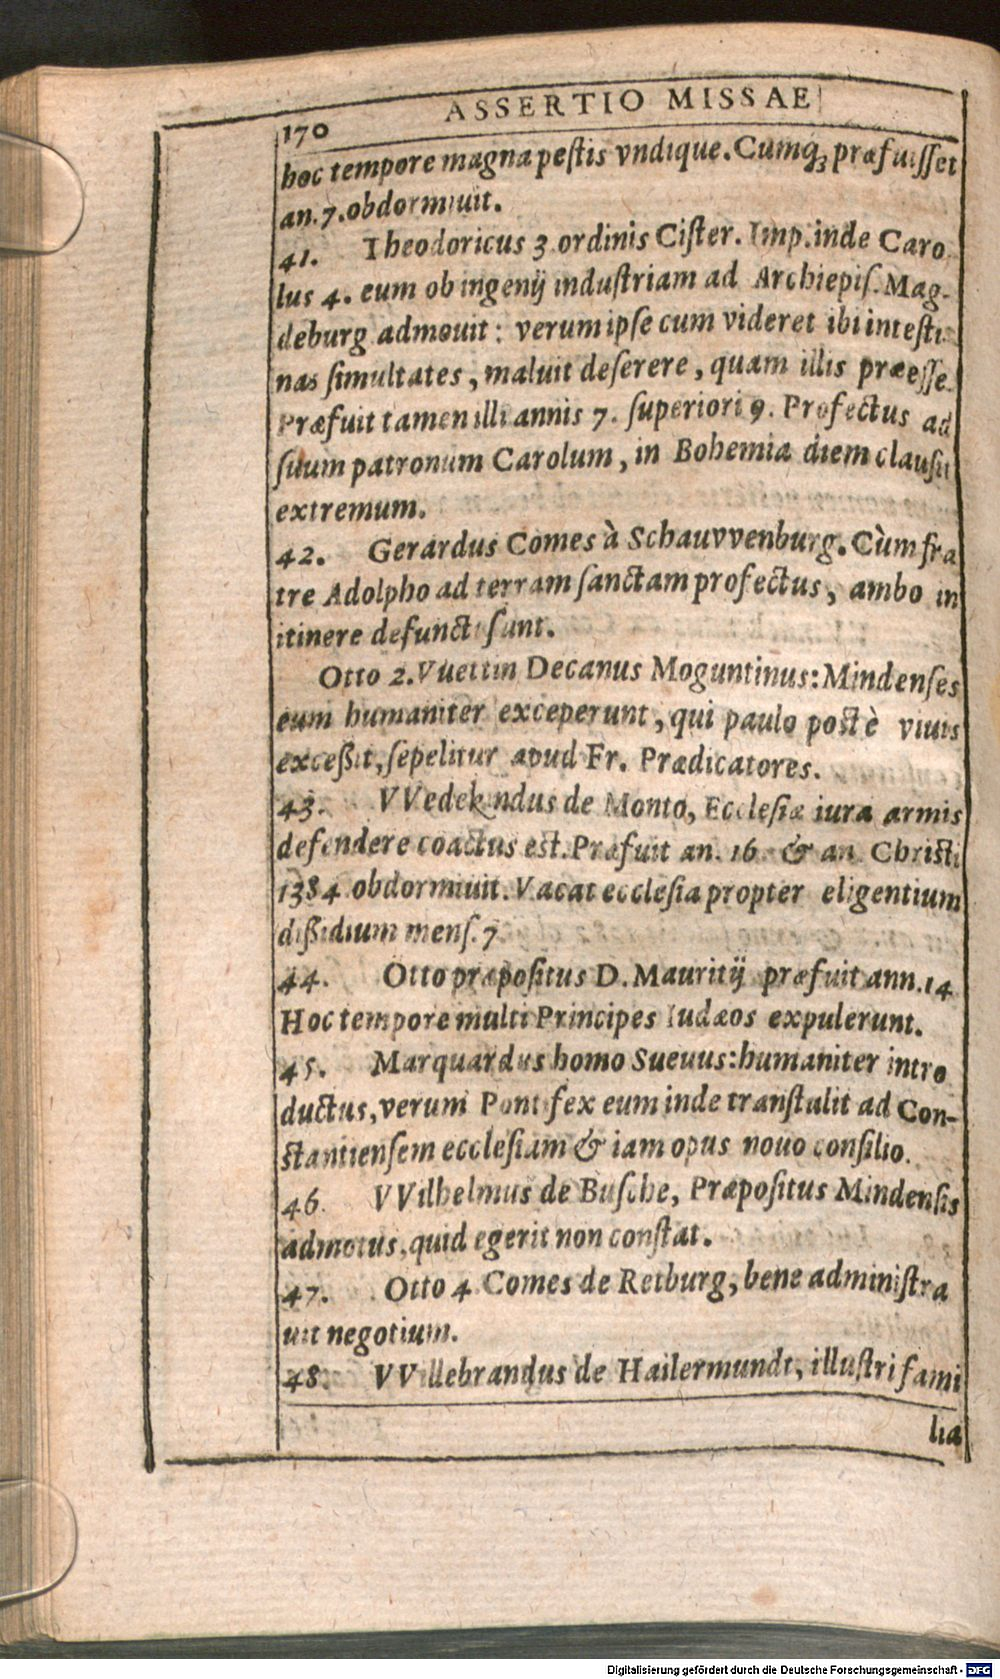 170
ASSERTIO MISSAE
hoc tempore magna pestis vndique. Cumq́; præfuisset
an. 7. obdormiuit.
41. Theodoricus 3 ordinis Cister. Imp. inde Caro
lus 4. eum ob ingenij industriam ad Archiepis. Mag-
deburg admouit: verum ipse cum videret ibi intesti-
nas simultates, maluit deserere, quam illis præesse.
Præfuit tamen illi annis 7. superiori 9. Profectus ad
suum patronum Carolum, in Bohemia diem clausit
extremum.
42. Gerardus Comes à Schauvvenburg. Cùm fra
tre Adolpho ad terram sanctam profectus, ambo in
itinere defuncti sunt.
Otto 2. Vuettin Decanus Moguntinus: Mindenses
eum humaniter exceperunt, qui paulo post è viuis
excessit, sepelitur apud Fr. Prædicatores.
43. VVedekindus de Monto, Ecclesiæ iura armis
defendere coactus est. Præfuit an. 16. & an. Christi
1384. obdormiuit. Vacat ecclesia propter eligentium
dissidium mens. 7
44. Otto præpositus D. Mauritij præfuit ann. 14
Hoc tempore multi Principes Iudæos expulerunt.
45. Marquardus homo Sueuus: humaniter intro
ductus, verum Pontifex eum inde transtulit ad Con-
stantiensem ecclesiam & iam opus nouo consilio.
46. VVilhelmus de Busche, Præpositus Mindensis
admotus, quid egerit non constat.
47. Otto 4 Comes de Retburg, bene administra
uit negotium.
48. VVillebrandus de Hailermundt, illustri fami
lia
Digitalisierung gefördert durch die Deutsche Forschungsgemeinschaft - DFG